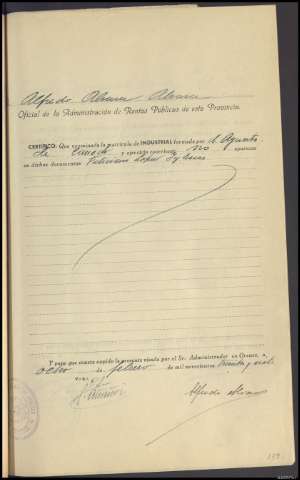 Alfredo Alvarez Alvarez
Oficial de la Administración de Rentas Públicas de esta Provincia.
CERTIFICO: Que examinada la matrícula de INDUSTRIAL formada por el Ayunto
de y apéndice no aparece
en dichos documentos López
Y para que conste expido la presente visada por el Sr. Administrador en Orense, a
ocho de febrero de mil novecientos treinta y siete
V.º B.º
Alfredo Alvarez